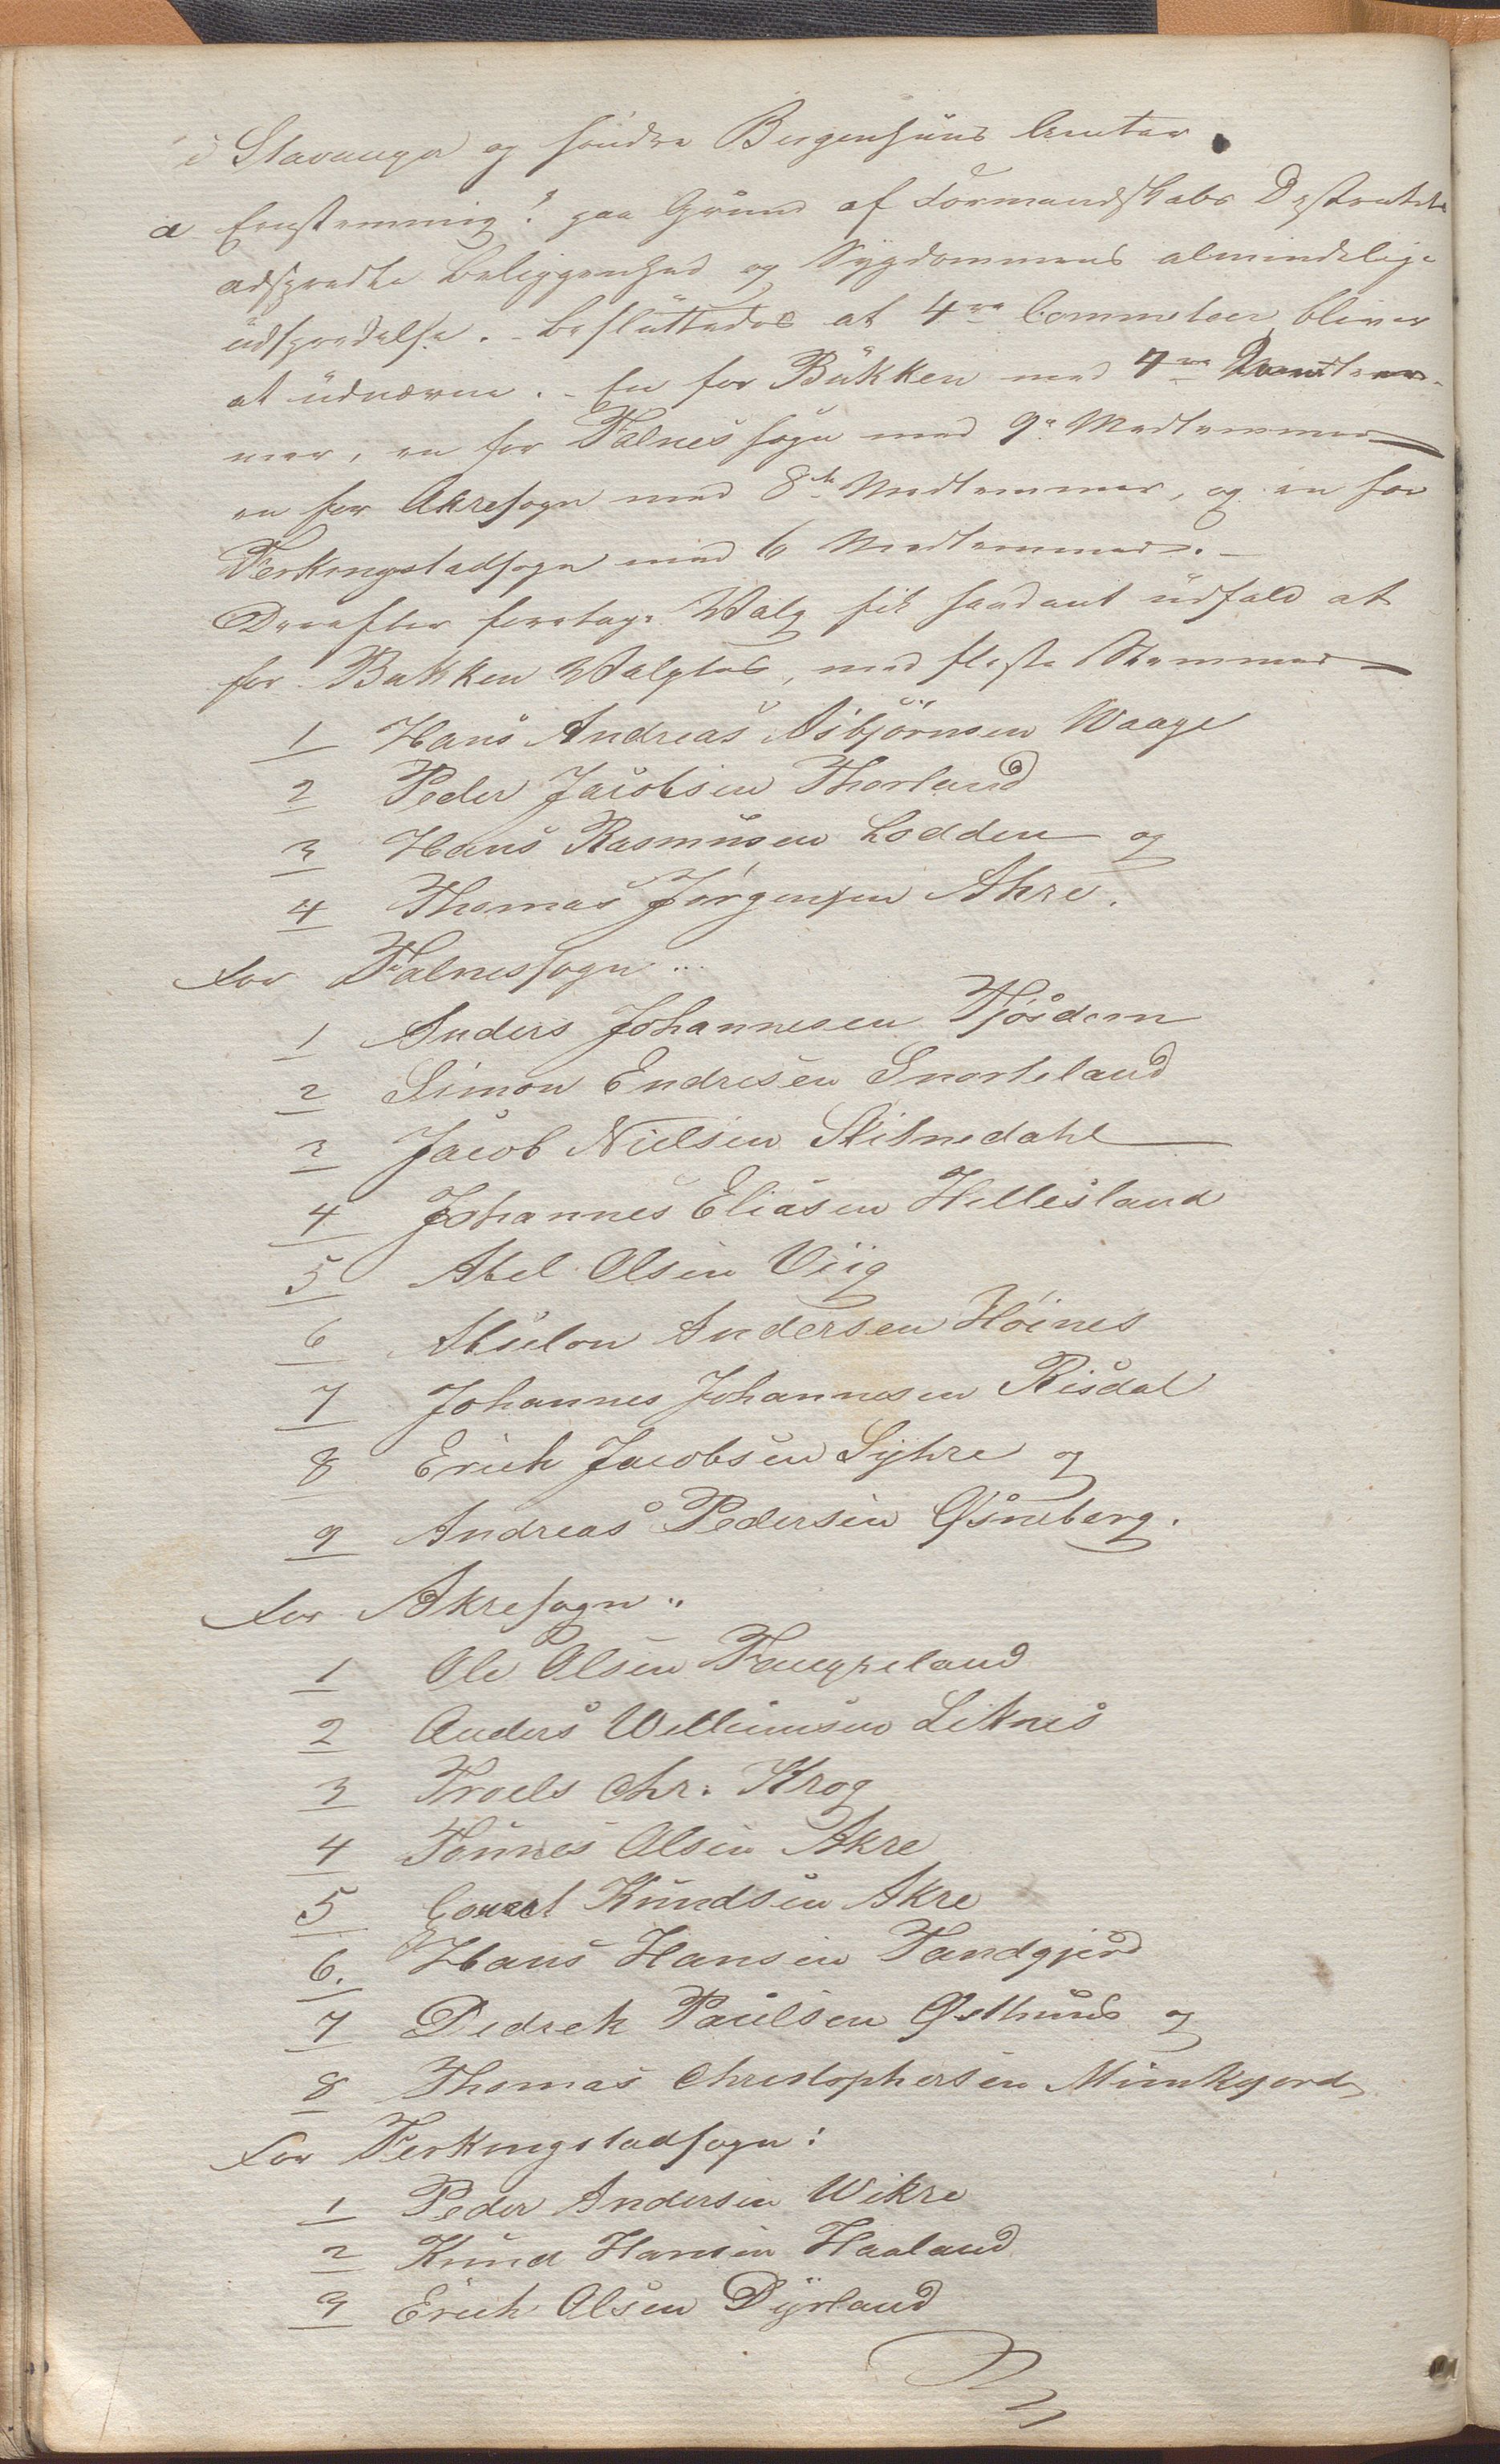 i Stavanger og søndre Bergenhuus Amter.
a Eenstemmig! paa Grund af Formandskabs Destrictets
adspredte Beliggenhed og Sygdommens almindelige
udspredelse. - besluttedes at 4re Commeteer bliver
at udnævne. - En for Bukken med 4re Medlem-
mer, en for Falnes sogn med 9e Medlemmer
en for Akresogn med 8te Medlemmer, og en for
Ferkingstadsogn med 6 Medlemmer. -
Derefter foretage Valg fik saadant udfald at
for Bukken Valgtes, med fleste Stemmer
1 Hans Andreas Asbjörnsen Waage
2 Peder Jacobsen Thorland
3 Hans Rasmusen Lodden og
4 Thomas Jørgensen Ahre.
For Falnessogn ..
1 Anders Johannesen Tjösdem
2 Simon Endresen Snorteland
3 Jacob Nielsen Stitnedahl
4 Johannes Eliasen Hellesland
5 Abel Olsen Viig
6 Abselon Andersen Høines
7 Johannes Johannesen Risdal
8 Erich Jacobsen Syhre og
9 Andreas Pedersen Øsneberg.
For Akresogn ..
1 Ole Olsen Faugreland
2 Anders Wellumsen Liknes
3 Troels Chr. Krog
4 Tönnes Olsen Akre
5 Knudsen Akre
6. Hans Hansen Tandgjerd
7 Dedrek Paulsen Østhuus og
8 Thomas Christophersen Munkejord
For Ferkingstadsogn:
1 Peder Andersen Wikre
2 Knud Hansen Haaland
3 Erich Olsen Dyrland